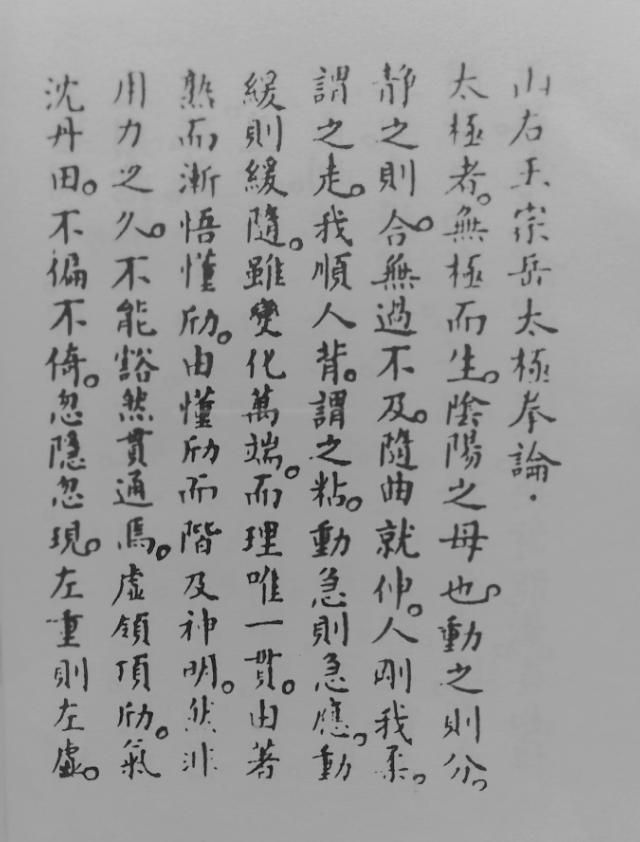 山右王宗岳太極拳論.
太極者。無極而生。陰陽之母也。動之則分。
靜之則合。無過不及。隨曲就伸。人剛我柔。
謂之走。我順人背。謂之粘。動急則急應。動
緩則緩隨。雖變化萬端。而理唯一貫。由著
熟而漸悟懂劤。由懂劤而階及神明。然非
用力之久。不能豁然貫通焉。虛領頂劤。氣
沈丹田。不偏不倚。忽隱忽現。左重則左虛。